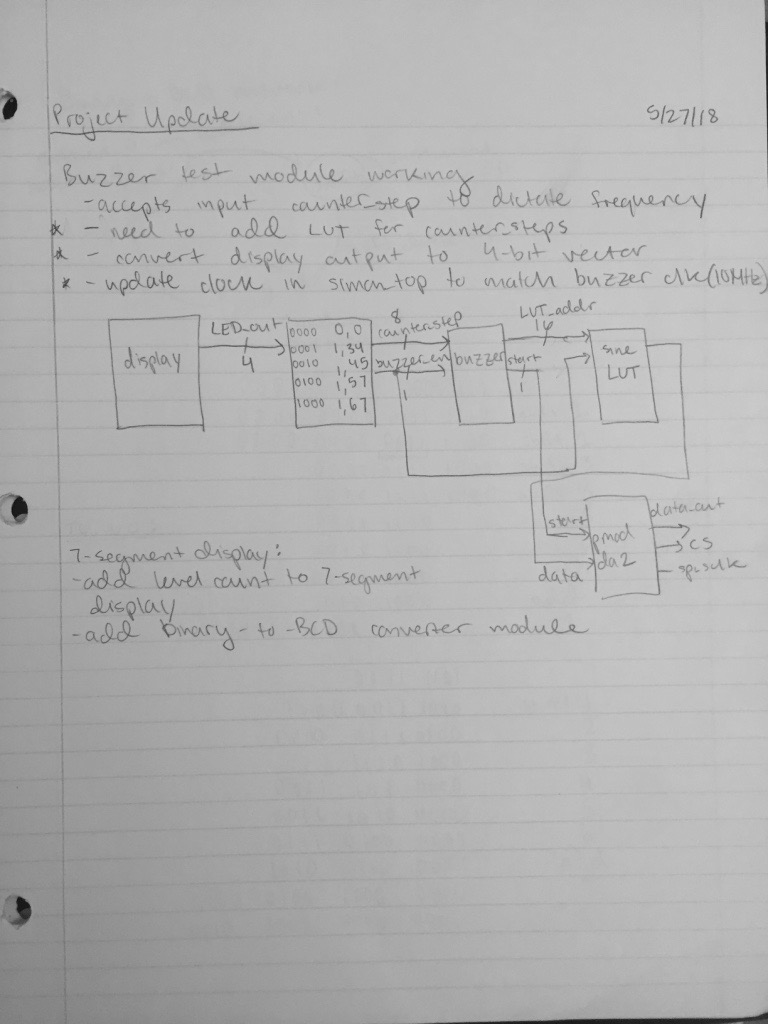 Project Update 5/27/18
Buzzer test module working
- accepts input counter_step to dictate frequency
* - need to add LUT for counter_steps
* - convert display output to 4-bit vector
* - update clock in simon_top to match buzzer clk (10MHz)
display
LED_out
4
0000 0,0
0001 1,34
0010 1,45
0100 1,57
1000 1,67
8
counter_step
buzzer_en
1
buzzer
LUT_addr
16
start
1
sine
LUT
start
data
pmod
da2
data_out
CS
spi_sclk
7-segment display:
- add level count to 7-segment
display
- add binary-to-BCD converter module